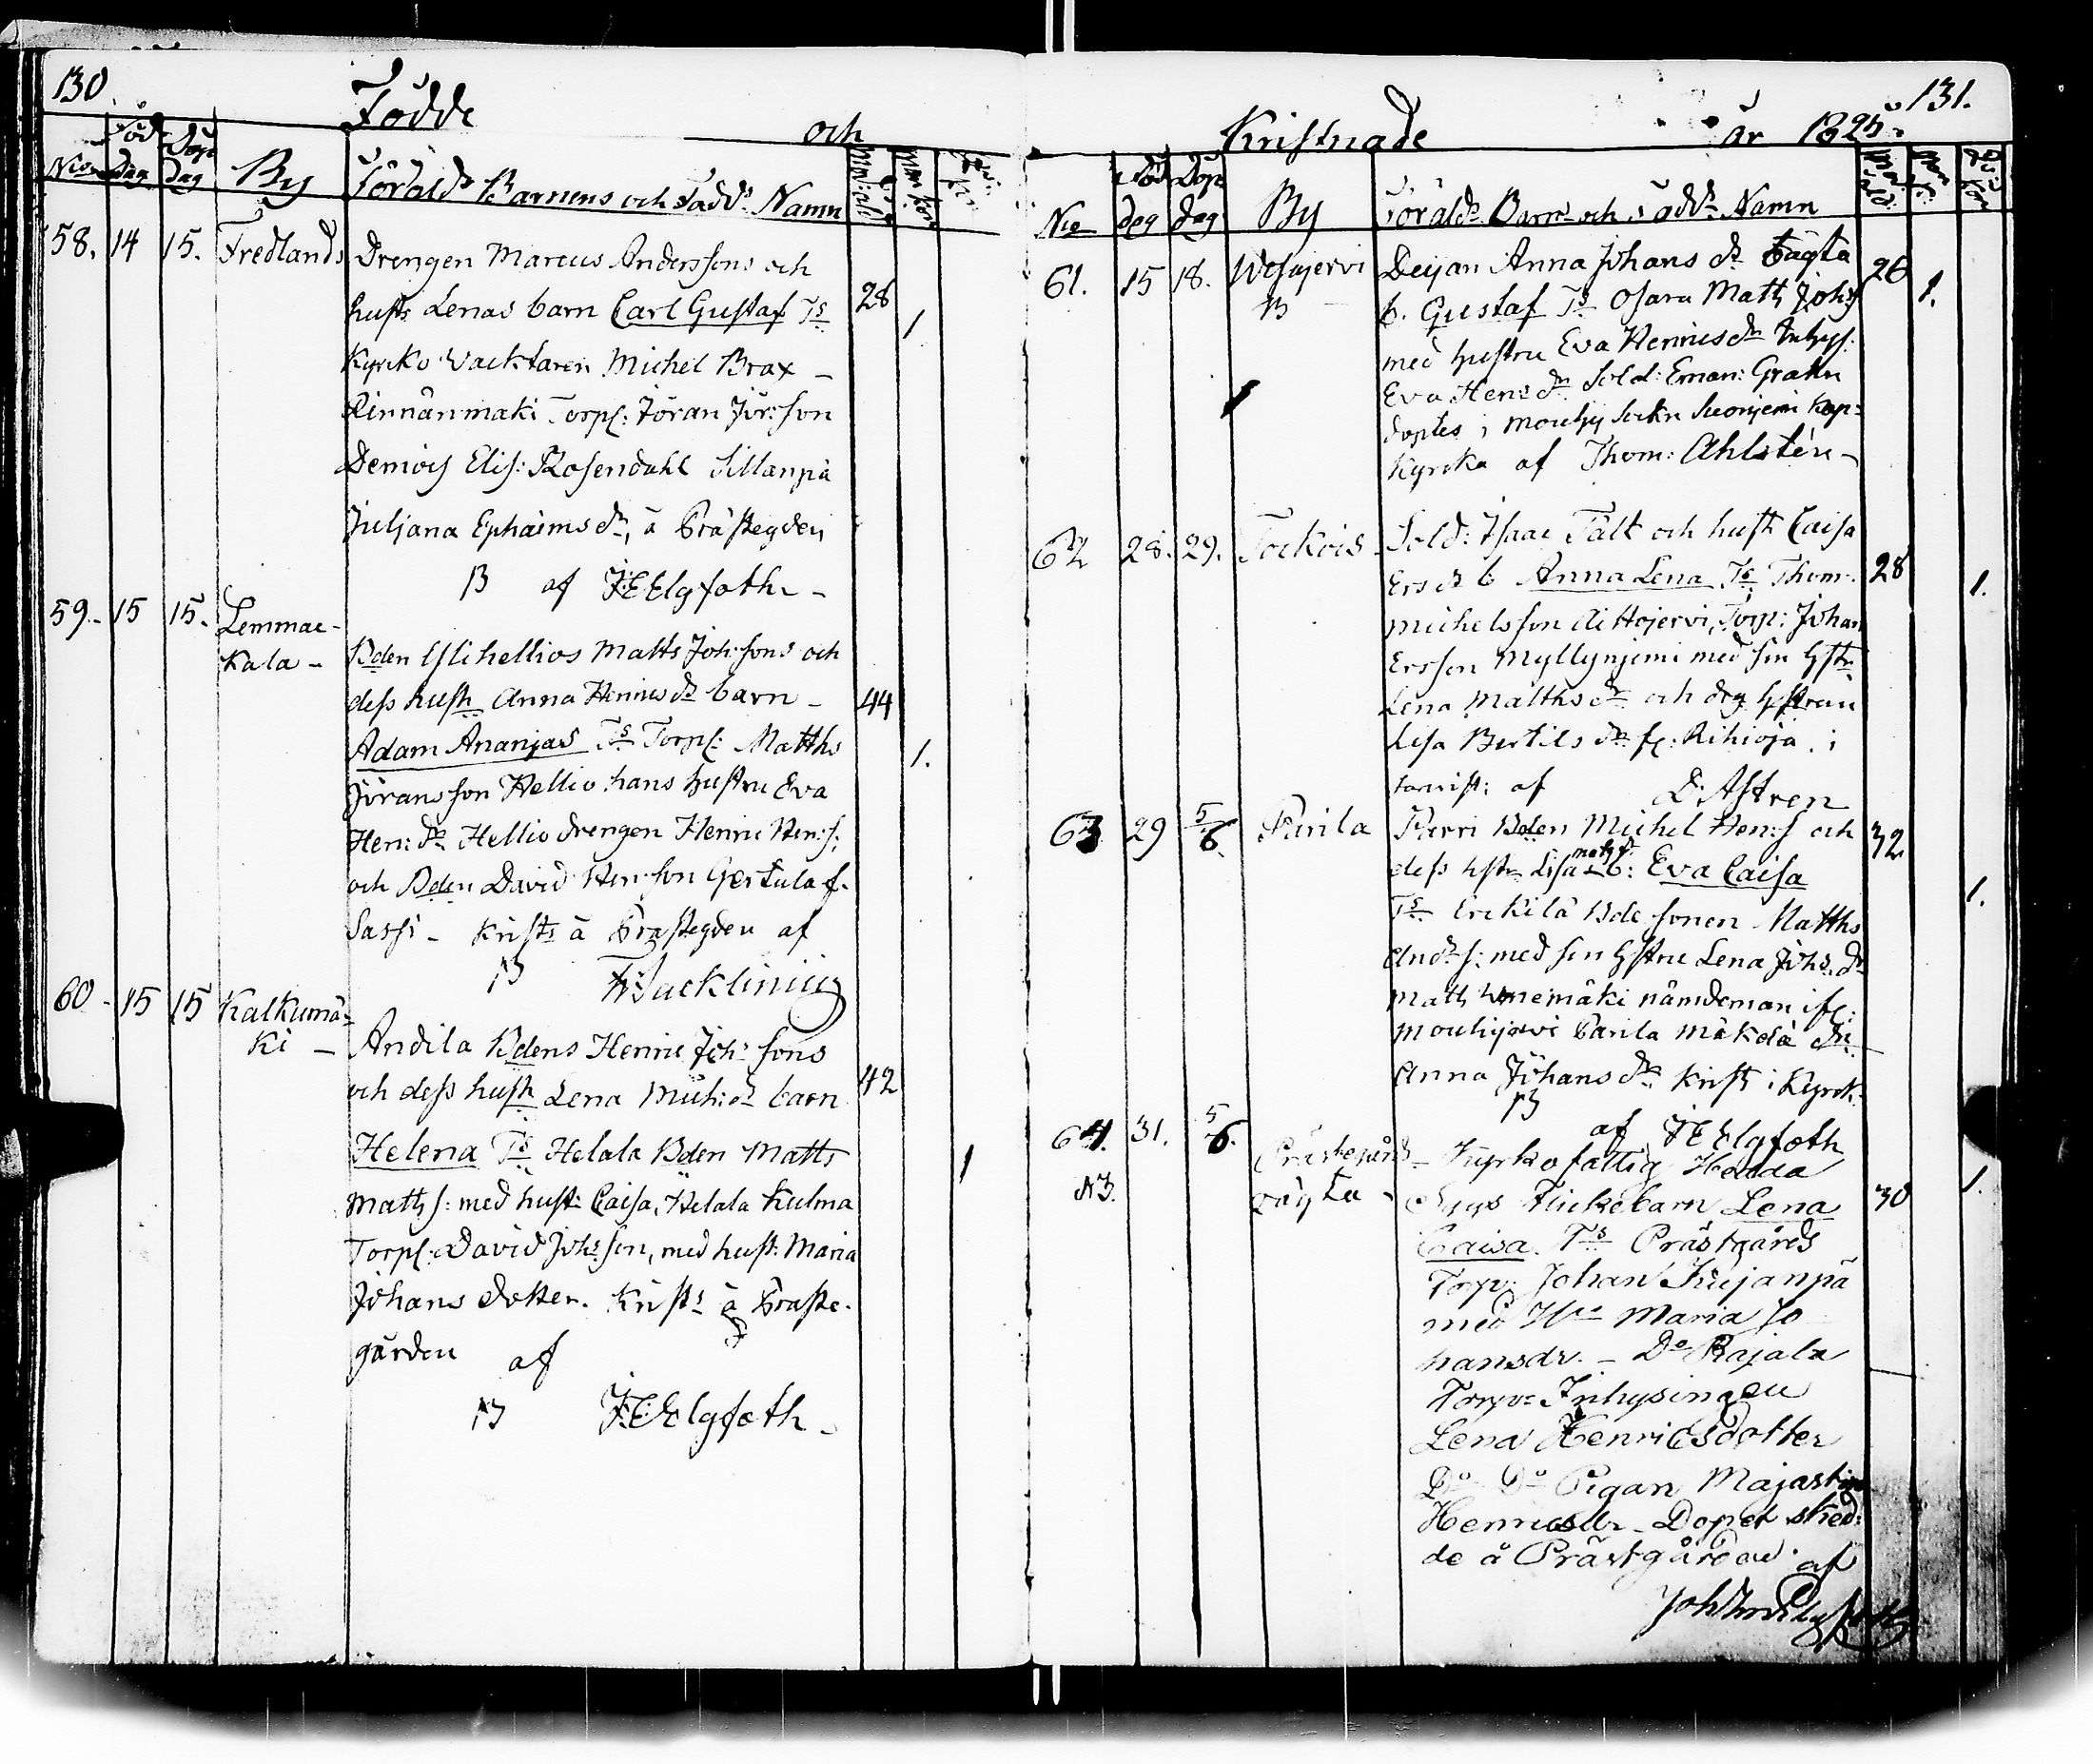 130
Födde
och
Nio Föd dag Döp dag By Föräld:s Barnens och Fadd:s Namn
58. 14 15. Fredlands Drengen Marcus Anderssons och
hust: Lenas barn Carl Gustaf Ts 28 1
Kyrko vacktaren Michel Brax
Rinnänmäki Torp: Jöran Jör:son
Demois Elis: Rosendahl Sillanpä
Juljana Ephaims dr, å Prästegden
B af J:E Elgfoth
59. 15 15. Lemmac-
kala Bden Ylihellios Matts Joh:sons och
dess hust Anna Henrics dr barn 44
Adam Ananjas Ts Torp: Matths 1.
Jöransson Hellio hans hustru Eva
Hen: Dr Hellio drengen Henric Hen:s:
och Bden David Hen:son Gertula f.
Sassi Krist:s å Prästegden af
B
60 15 15 Kalkumä-
ki Andila Bdens Henric Joh:sons
och dess hust Lena Mich: dr barn 42
Helena Ts Helala Bden Matts 1
Matts s: med hust: Caisa, Helala Kulma
Torp: David Joh:son, med hust: Maria
Johans dotter. Krist:s å Präste-
gården af
B J:E Elgfoth
131.
Kristnade år 1825.
Nio Föd dag Döp dag By Föräld:s Barn:s och Fadd:s Namn
61. 15 18. Wesajervi Deijan Anna Johans dr Tägta 26
B b. Gustaf Ts Osara Matts Joh:s 1.
med hustru Eva Henrics dr Inhys:
Eva Hen:s dr Sold: Eman: Grahn
doptes i Mouhij Sockn Suonjemi Kap-
kyrcka af Thom: Ahlstén
62 28. 29. Tockois Sold: Isaac Tält och hust Caisa
Ers dr b Anna Lena Ts Thom: 28 1.
Michelsson Aittojervi, Torp: Johan
Ersson Myllynjemi med sin hstr
Lena Matths dr och hstrun
Lisa Bertils dr fr: Rihioja i
af D: Astren
63 29 5/6 Parila Parri Bden Michel Hen:s och 32
dess hstr Lisa Mats dr b: Eva Caisa 1.
Ts Erckilä Bde sonen Matths
And:s s: med sin hstru Lena Joh:s dr
Matts nämdeman
Mouhijervi Parila
Anna Johans dr Krist: i Kyrck:
B af J:E Elgfoth
64. 31. 5/6. Prästegårds Kyrkofattig Hedda
B. tägta Flickebarn Lena 30 1.
Caisa. Ts Prästgårds
Torp: Johan Kujanpä
med Maria Jo
hansdr. Do Rajala
Torp: Inhysingen
Lena Henricsdotter
Do Do Pigan Majastina
Henricsdr Dopet sked-
de å Prästgården af